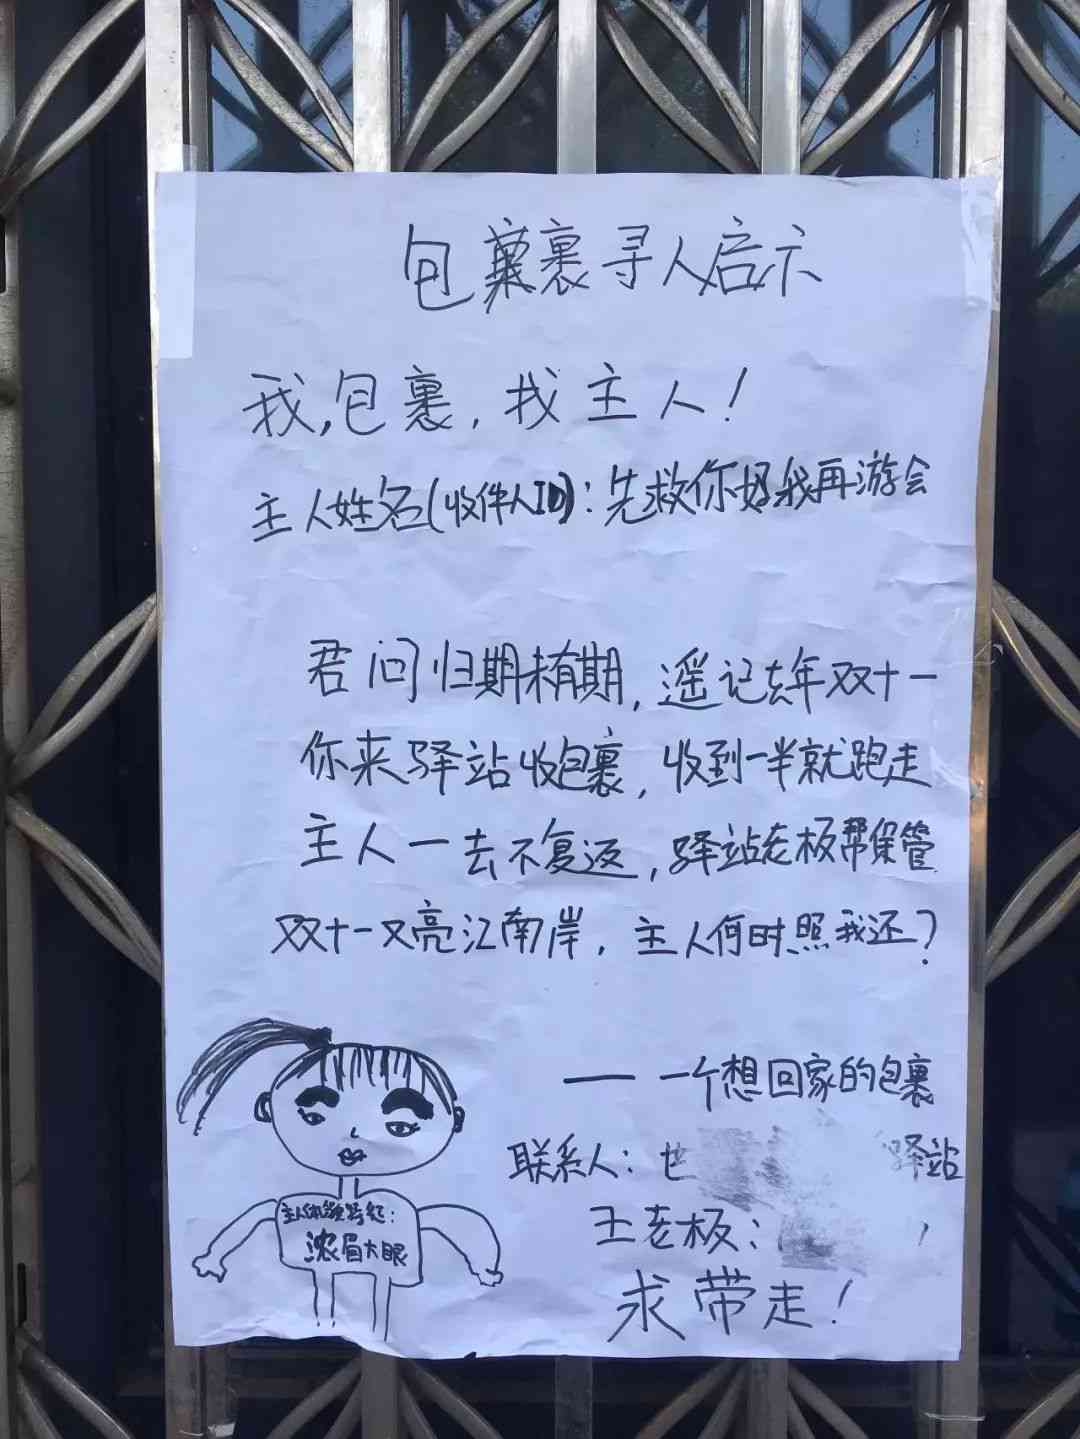 包裹寻人启示
我,包裹,找主人!
主人姓名(收件人ID):先救你妈我再游会
君问归期未有期,遥记去年双十一
你来驿站收包裹,收到一半就跑走
主人一去不复返,驿站老板帮保管
双十一又亮江南岸,主人何时照我还?
—— 一个想回家的包裹
联系人: 驿站
王老板:
求带走!
主人体貌特征:
浓眉大眼